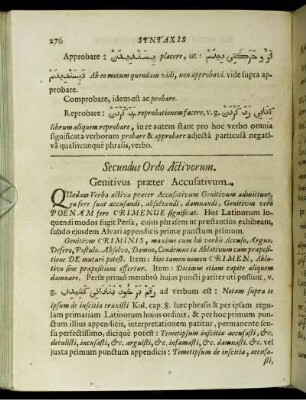 276 SYNTAXIS
Approbare: پسندیدن placere, ut:
Ab eo motum quendam vidi, non approbavi. vide supra ap-
probare.
Comprobare, idem est ac probare.
Reprobare: رد کردن reprobationem facere, v. g.
librum aliquem reprobare, in re autem stant pro hoc verbo omnia
significata verborum probare & approbare adjecta particulâ negati-
vâ qualiscunque phrasis, verbo.
Secundus Ordo Activorum.
Genitivus præter Accusativum.
Quædam Verba activa præter Accusativum Genitivum admittunt,
qualia sunt accusandi, absolvendi, damnandi, Genitivus verò
POENAM ferè CRIMENUE significat. Hos Latinorum lo-
quendi modos fugit Persa, cujus phrasim ut prestantiùs exhibeam,
subdo ejusdem Alvari appendicis primæ punctum primum.
Genitivus CRIMINIS, maximè cum his verbis Accuso, Arguo,
Defero, Postulo, Absolvo, Damno, Condemno in Ablativum cum præpositio-
ne DE mutari potest. Item: hoc tamen nomen CRIMEN, Ablati-
vo sine præpositione effertur. Item: Decimus etiam capite aliquem
damnare. Persæ primò membro hujus puncti pariter uti possunt, v.
g. ad verbum est: Notam supra te
ipsum de inscitia traxisti Kol. cap. 8. hæc phrasis & per ipsam regu-
lam primariam Latinorum hujus ordinis, & per hoc primum pun-
ctum illius appendicis, interpretationem patitur, permanente sen-
sûs perfectissimo, dicique potest: Temetipsum inscitiæ accusasti, &c.
detulisti, incusasti, &c. arguisti, &c. infamasti, &c. damnasti. &c. vel
juxta primum punctum appendicis: Temetipsum de inscitia, accusa-
sti,